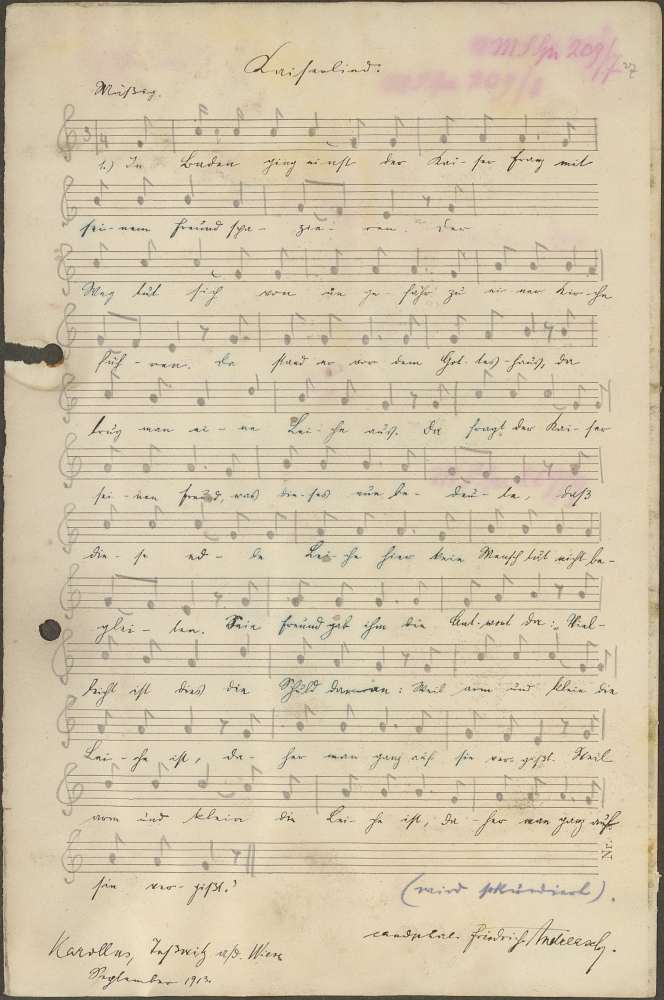 Kaiserlied.
27
Mäßig.
3/4
1.) In Baden ging einst der Kai-ser Franz mit
sei-nem Freund spa-zie-ren. Der
Weg tut sich von un ge-fähr zu ei-ner Kir-che
füh-ren. Da stand er vor dem Got-tes-haus, da
trug man ei-ne Lei-che aus. Da fragt der Kai-ser
sei-nen Freund, was die-ses nun be-deu-te, daß
die-se ed-le Lei-che hier kein Mensch tut nicht be-
glei-ten. Sein Freund gab ihm die Ant-wort da: Viel-
leicht ist dies die Schuld daran: Weil arm und klein die
Lei-che ist, da-her man ganz auf sie ver-gißt. Weil
arm und klein die Lei-che ist, da-her man ganz auf
sie ver-gißt.
Nr.
(wird sekundiert).
Friedrich
Karolus, Teßwitz a/d. Wiese
September 1913.